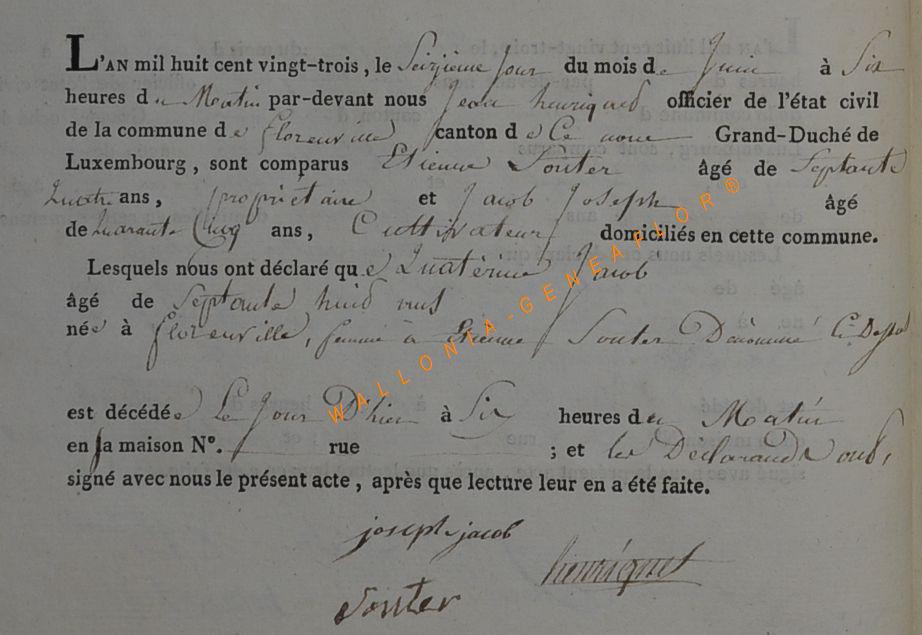 L'AN mil huit cent vingt-trois, le Seizième Jour du mois de Juin à Six
heures du Matin par-devant nous Jean henriquet officier de l'état civil
de la commune de florenville canton de Ce nom Grand-Duché de
Luxembourg, sont comparus Etienne Souter âgé de Septante
Quatre ans, propriétaire et Jacob Joseph âgé
de quarante Cinq ans, Cultivateur domiciliés en cette commune.
Lesquels nous ont déclaré que Quatérine Jacob
âgé de Septante huid ans
née à florenville, femme à Etienne Souter Dénommé Ci Dessu
est décédée Le Jour D'hier à Six heures du Matin
en sa maison N°. rue ; et les Déclarands ond,
signé avec nous le présent acte, après que lecture leur en a été faite.
joseph jacob
henriquet
Souter
WALLONIA-GENEAFLOR®